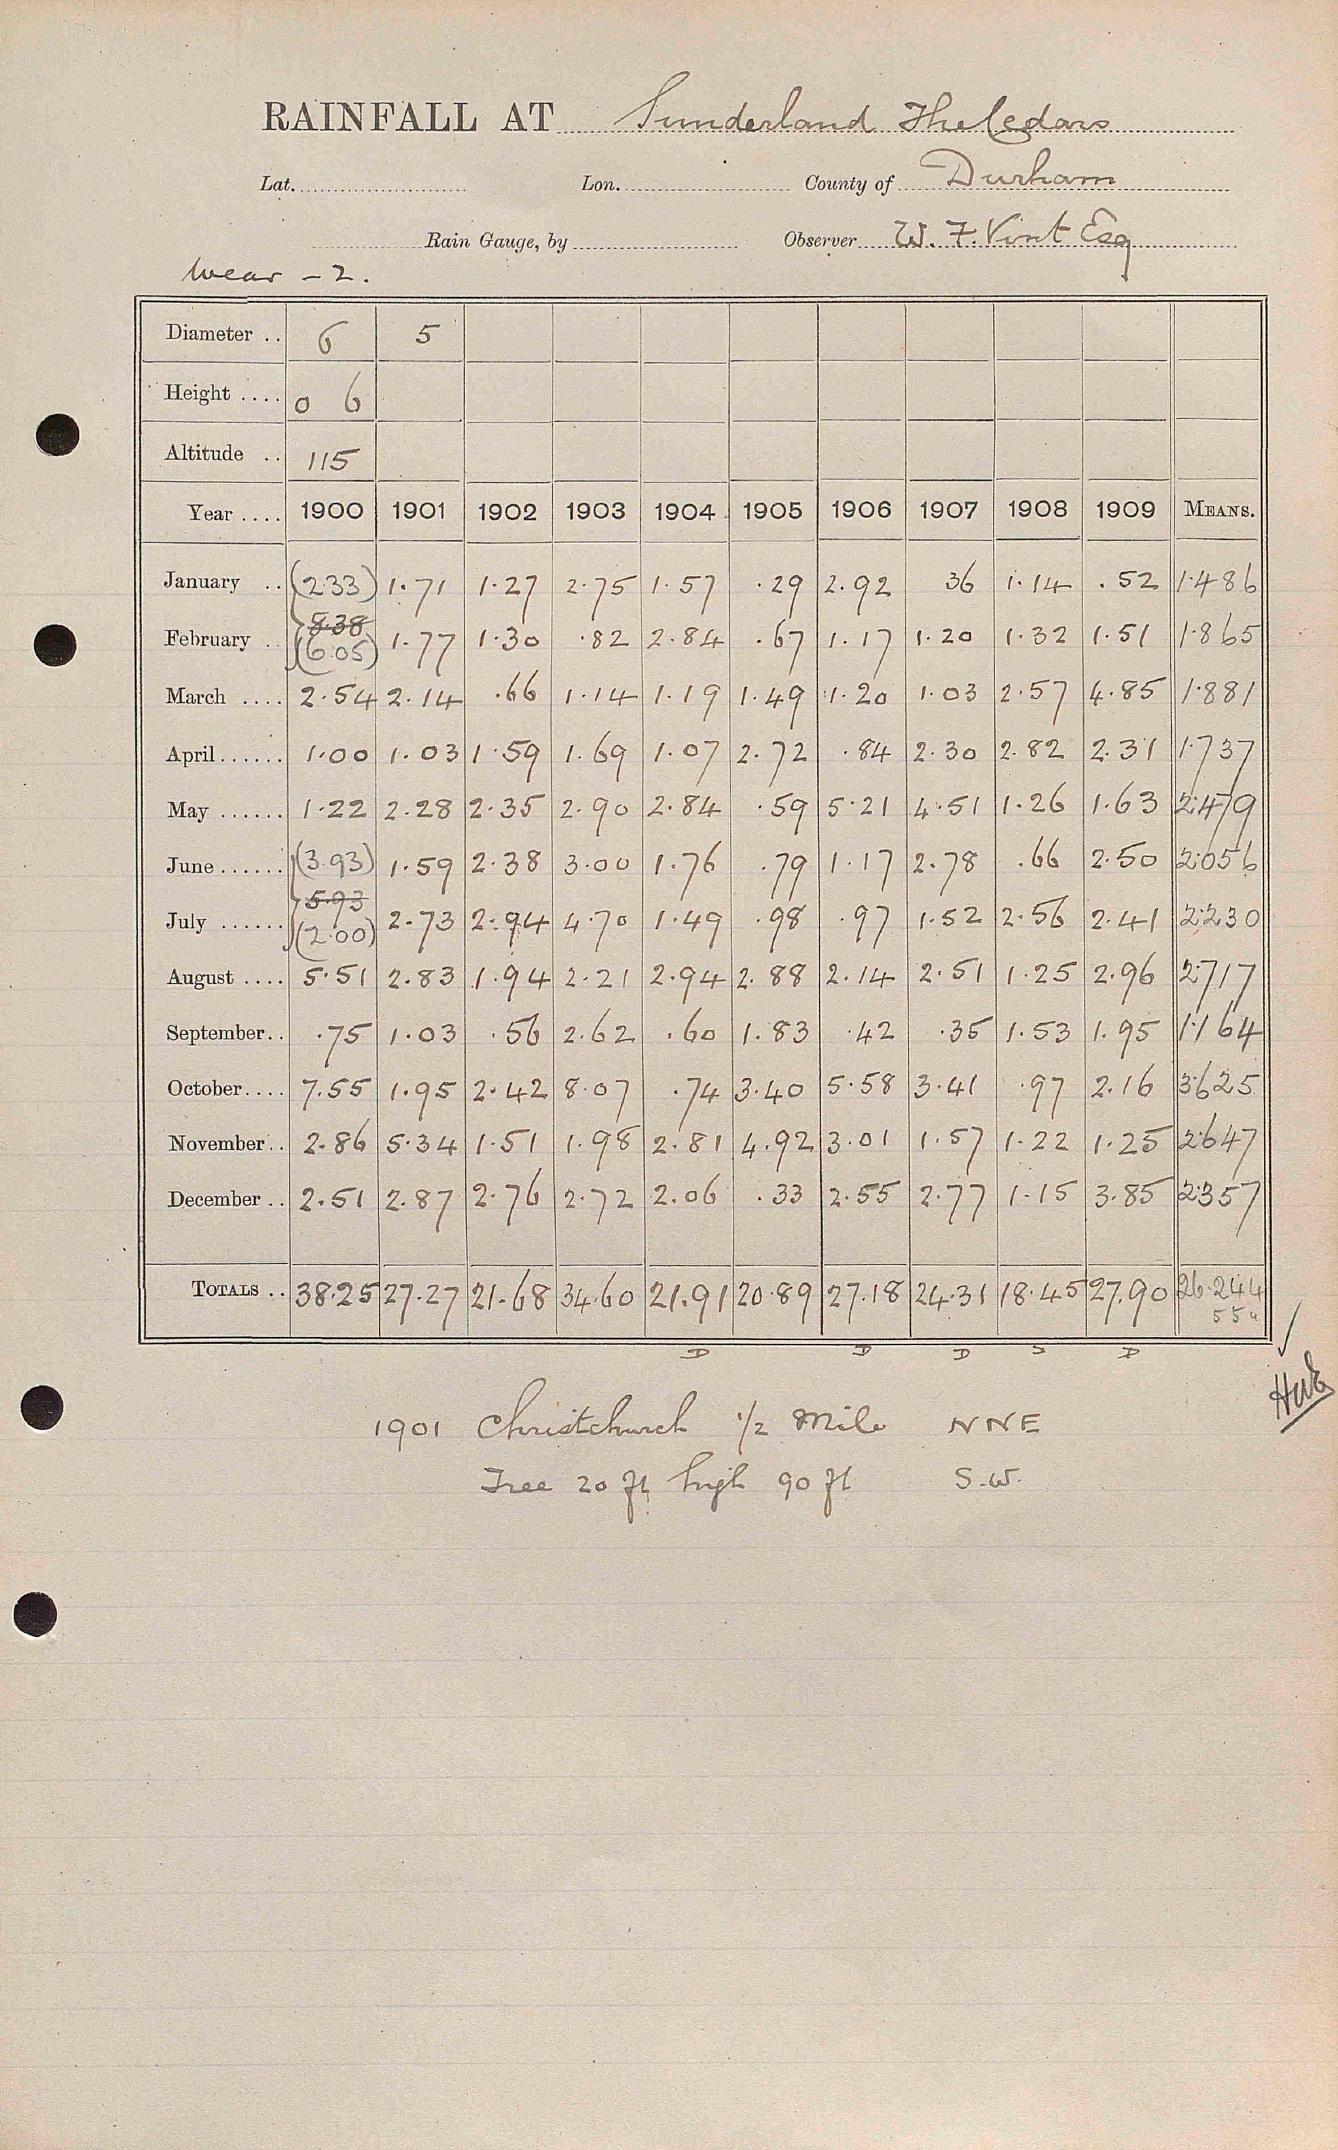 RAINFALL AT Sunderland The Cedars
Lat. Lon. County of Durham
Rain Gauge, by Observer W. F. Vint Esq
Wear - 2.
Diameter .. 6 5
Height .... 0 6
Altitude .. 115
Year .... 1900 1901 1902 1903 1904 1905 1906 1907 1908 1909 MEANS.
January .. (2.33) 1.71 1.27 2.75 1.57 .29 2.92 36 1.14 .52 1.486
8.38
February .. (6.05) 1.77 1.30 .82 2.84 .67 1.17 1.20 1.32 1.51 1.865
March .... 2.54 2.14 .66 1.14 1.19 1.49 1.20 1.03 2.57 4.85 1.881
April...... 1.00 1.03 1.59 1.69 1.07 2.72 .84 2.30 2.82 2.31 1.737
May ...... 1.22 2.28 2.35 2.90 2.84 .59 5.21 4.51 1.26 1.63 2.479
June...... (3.93) 1.59 2.38 3.00 1.76 .79 1.17 2.78 .66 2.50 2.056
5.93
July ...... (2.00) 2.73 2.94 4.70 1.49 .98 .97 1.52 2.56 2.41 2.230
August .... 5.51 2.83 1.94 2.21 2.94 2.88 2.14 2.51 1.25 2.96 2.717
September.. .75 1.03 .56 2.62 .60 1.83 .42 .35 1.53 1.95 1.164
October.... 7.55 1.95 2.42 8.07 .74 3.40 5.58 3.41 .97 2.16 3.625
November.. 2.86 5.34 1.51 1.98 2.81 4.92 3.01 1.57 1.22 1.25 2.647
December .. 2.51 2.87 2.76 2.72 2.06 .33 2.55 2.77 1.15 3.85 2.357
TOTALS .. 38.25 27.27 21.68 34.60 21.91 20.89 27.18 24.31 18.45 27.90 26.244
D D D S D
1901 Christchurch 1/2 Mile NNE
Tree 20 ft high 90 ft S.W.